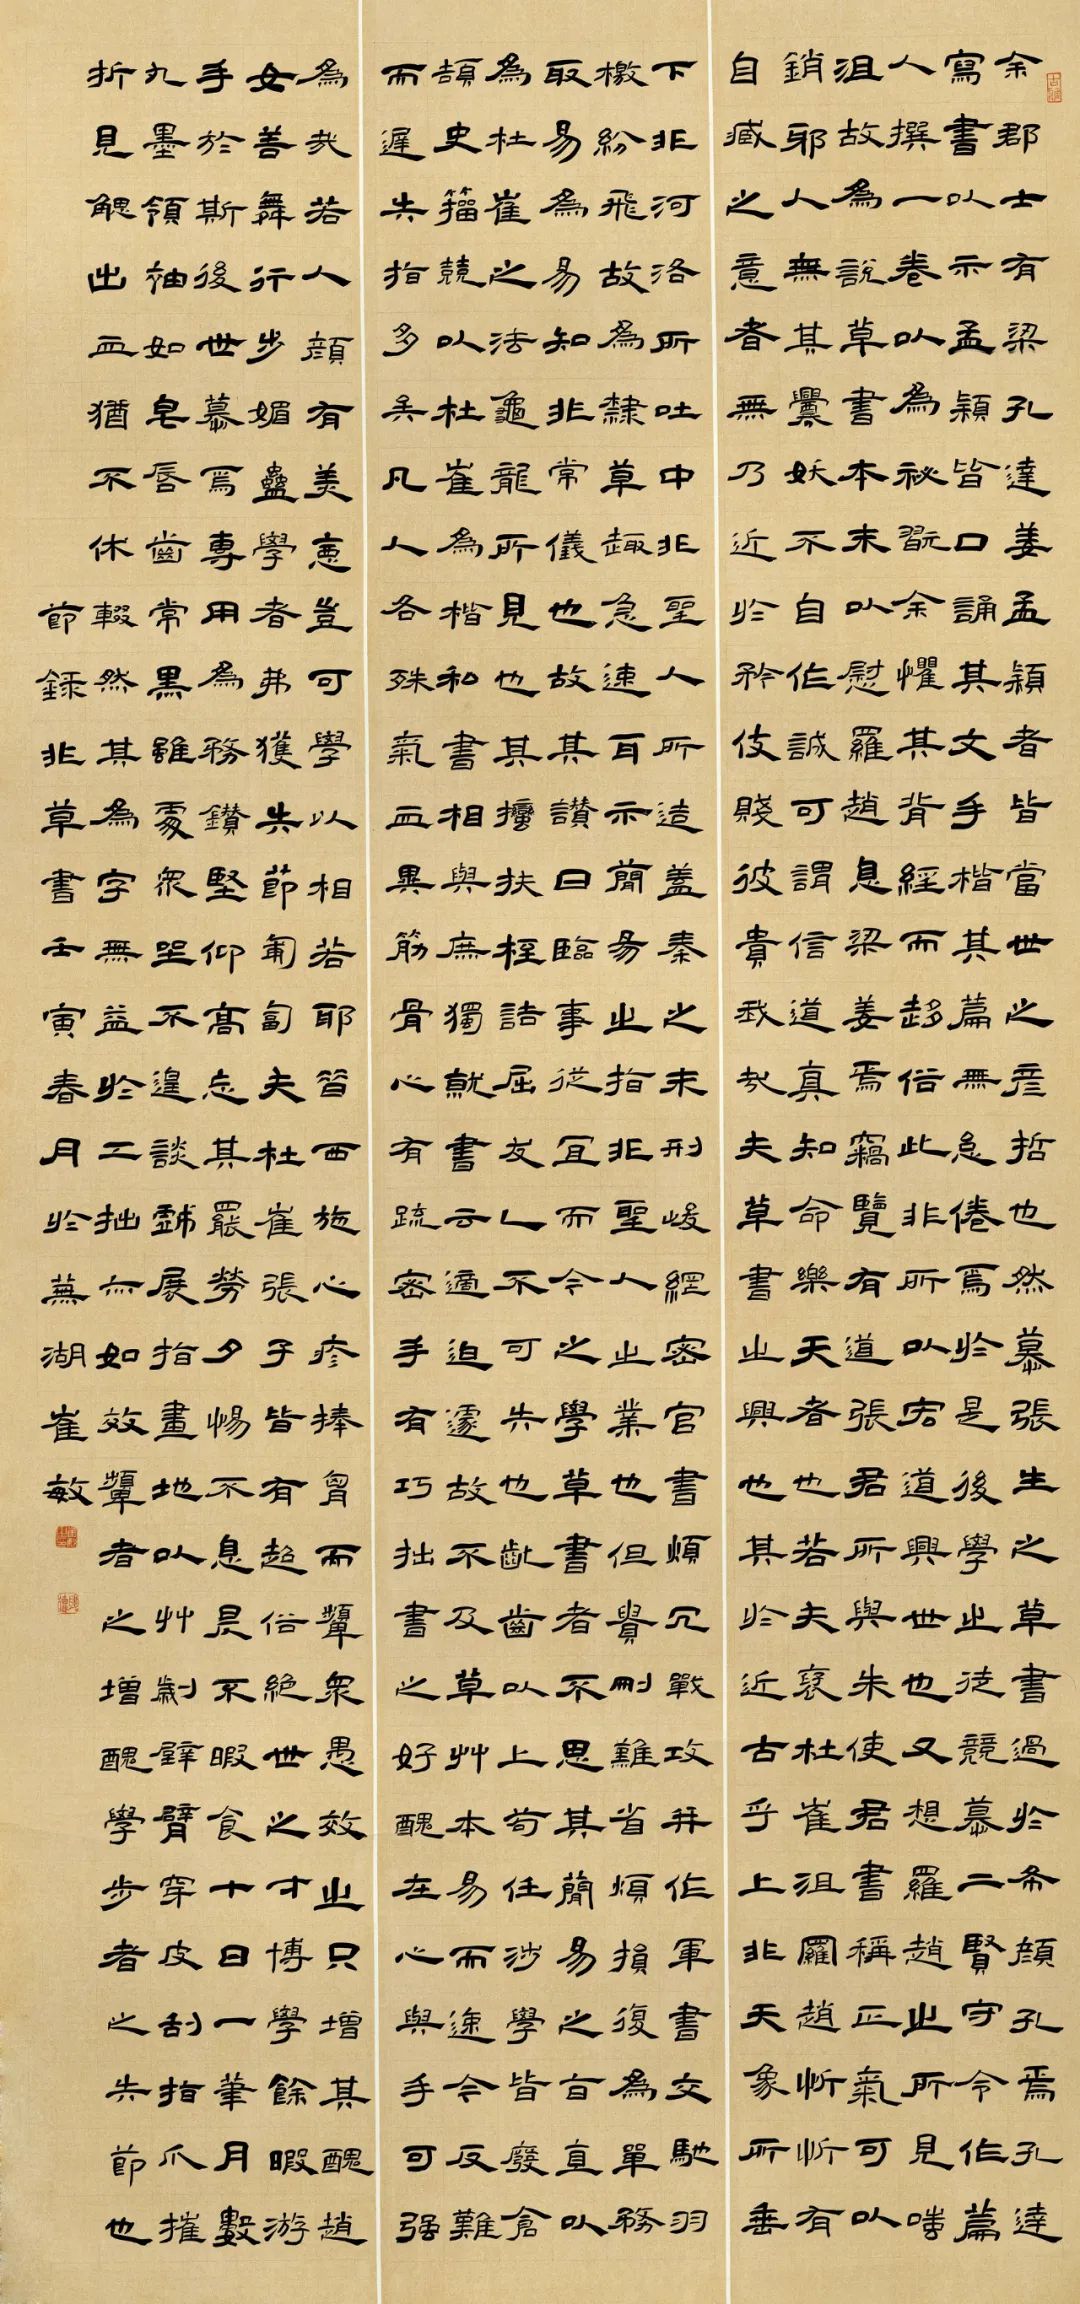 余郡士有梁孔達姜孟穎者皆當世之彥哲也然慕張生之草書過於希顏孔焉孔達
寫書以示孟穎皆口誦其文手楷其篇無怠倦焉於是後學之徒競慕二賢守令作篇
人撰一卷以為祕翫余懼其背經而趍俗此非所以宏道興世也又想羅趙之所見嗤
沮故為說草書本末以慰羅趙息梁姜焉竊覽有道張君所與朱使君書稱正氣可以
銷邪人無其釁妖不自作誠可謂信道真知命樂天者也若夫褒杜崔沮羅趙忻忻有
自臧之意者無乃近於矜伎賤彼貴我哉夫草書之興也其於近古乎上非天象所垂
下非河洛所吐中非聖人所造蓋秦之末刑峻網密官書煩冗戰攻并作軍書交馳羽
檄紛飛故為隸草趣急速耳示簡易之指非聖人之業也但貴刪難省煩損復為單務
取易為易知非常儀也故其讚曰臨事從宜而今之學草書者不思其簡易之旨直以
為杜崔之法龜龍所見也其扶桎詰屈友乚不可失也齔齒以上苟任涉學皆廢倉
頡史籀競以杜崔為楷和書相與庶獨就書云適迫遽故不及草艸本易而速今反難
而遲失指多矣凡人各殊氣血異筋骨心有疏密手有巧拙書之好醜在心與手可强
為哉若人顏有美惡豈可學以相若耶昔西施心疹捧胷而顰眾愚效之只增其醜趙
女善舞行步媚蠱學者弗獲失節匍匐夫杜崔張子皆有超俗絕世之才博學餘暇游
手於斯後世慕焉專用為務鑽堅仰高忘其罷勞夕惕不息昃不暇食十日一筆月數
丸墨領袖如皂唇齒常黑雖處眾坐不遑談戲展指畫地以艸劌壁臂穿皮刮指爪摧
折見䚡出血猶不休輟然其為字無益於工拙亦如效顰者之增醜學步者之失節也
節錄非草書壬寅春月於蕪湖崔敏